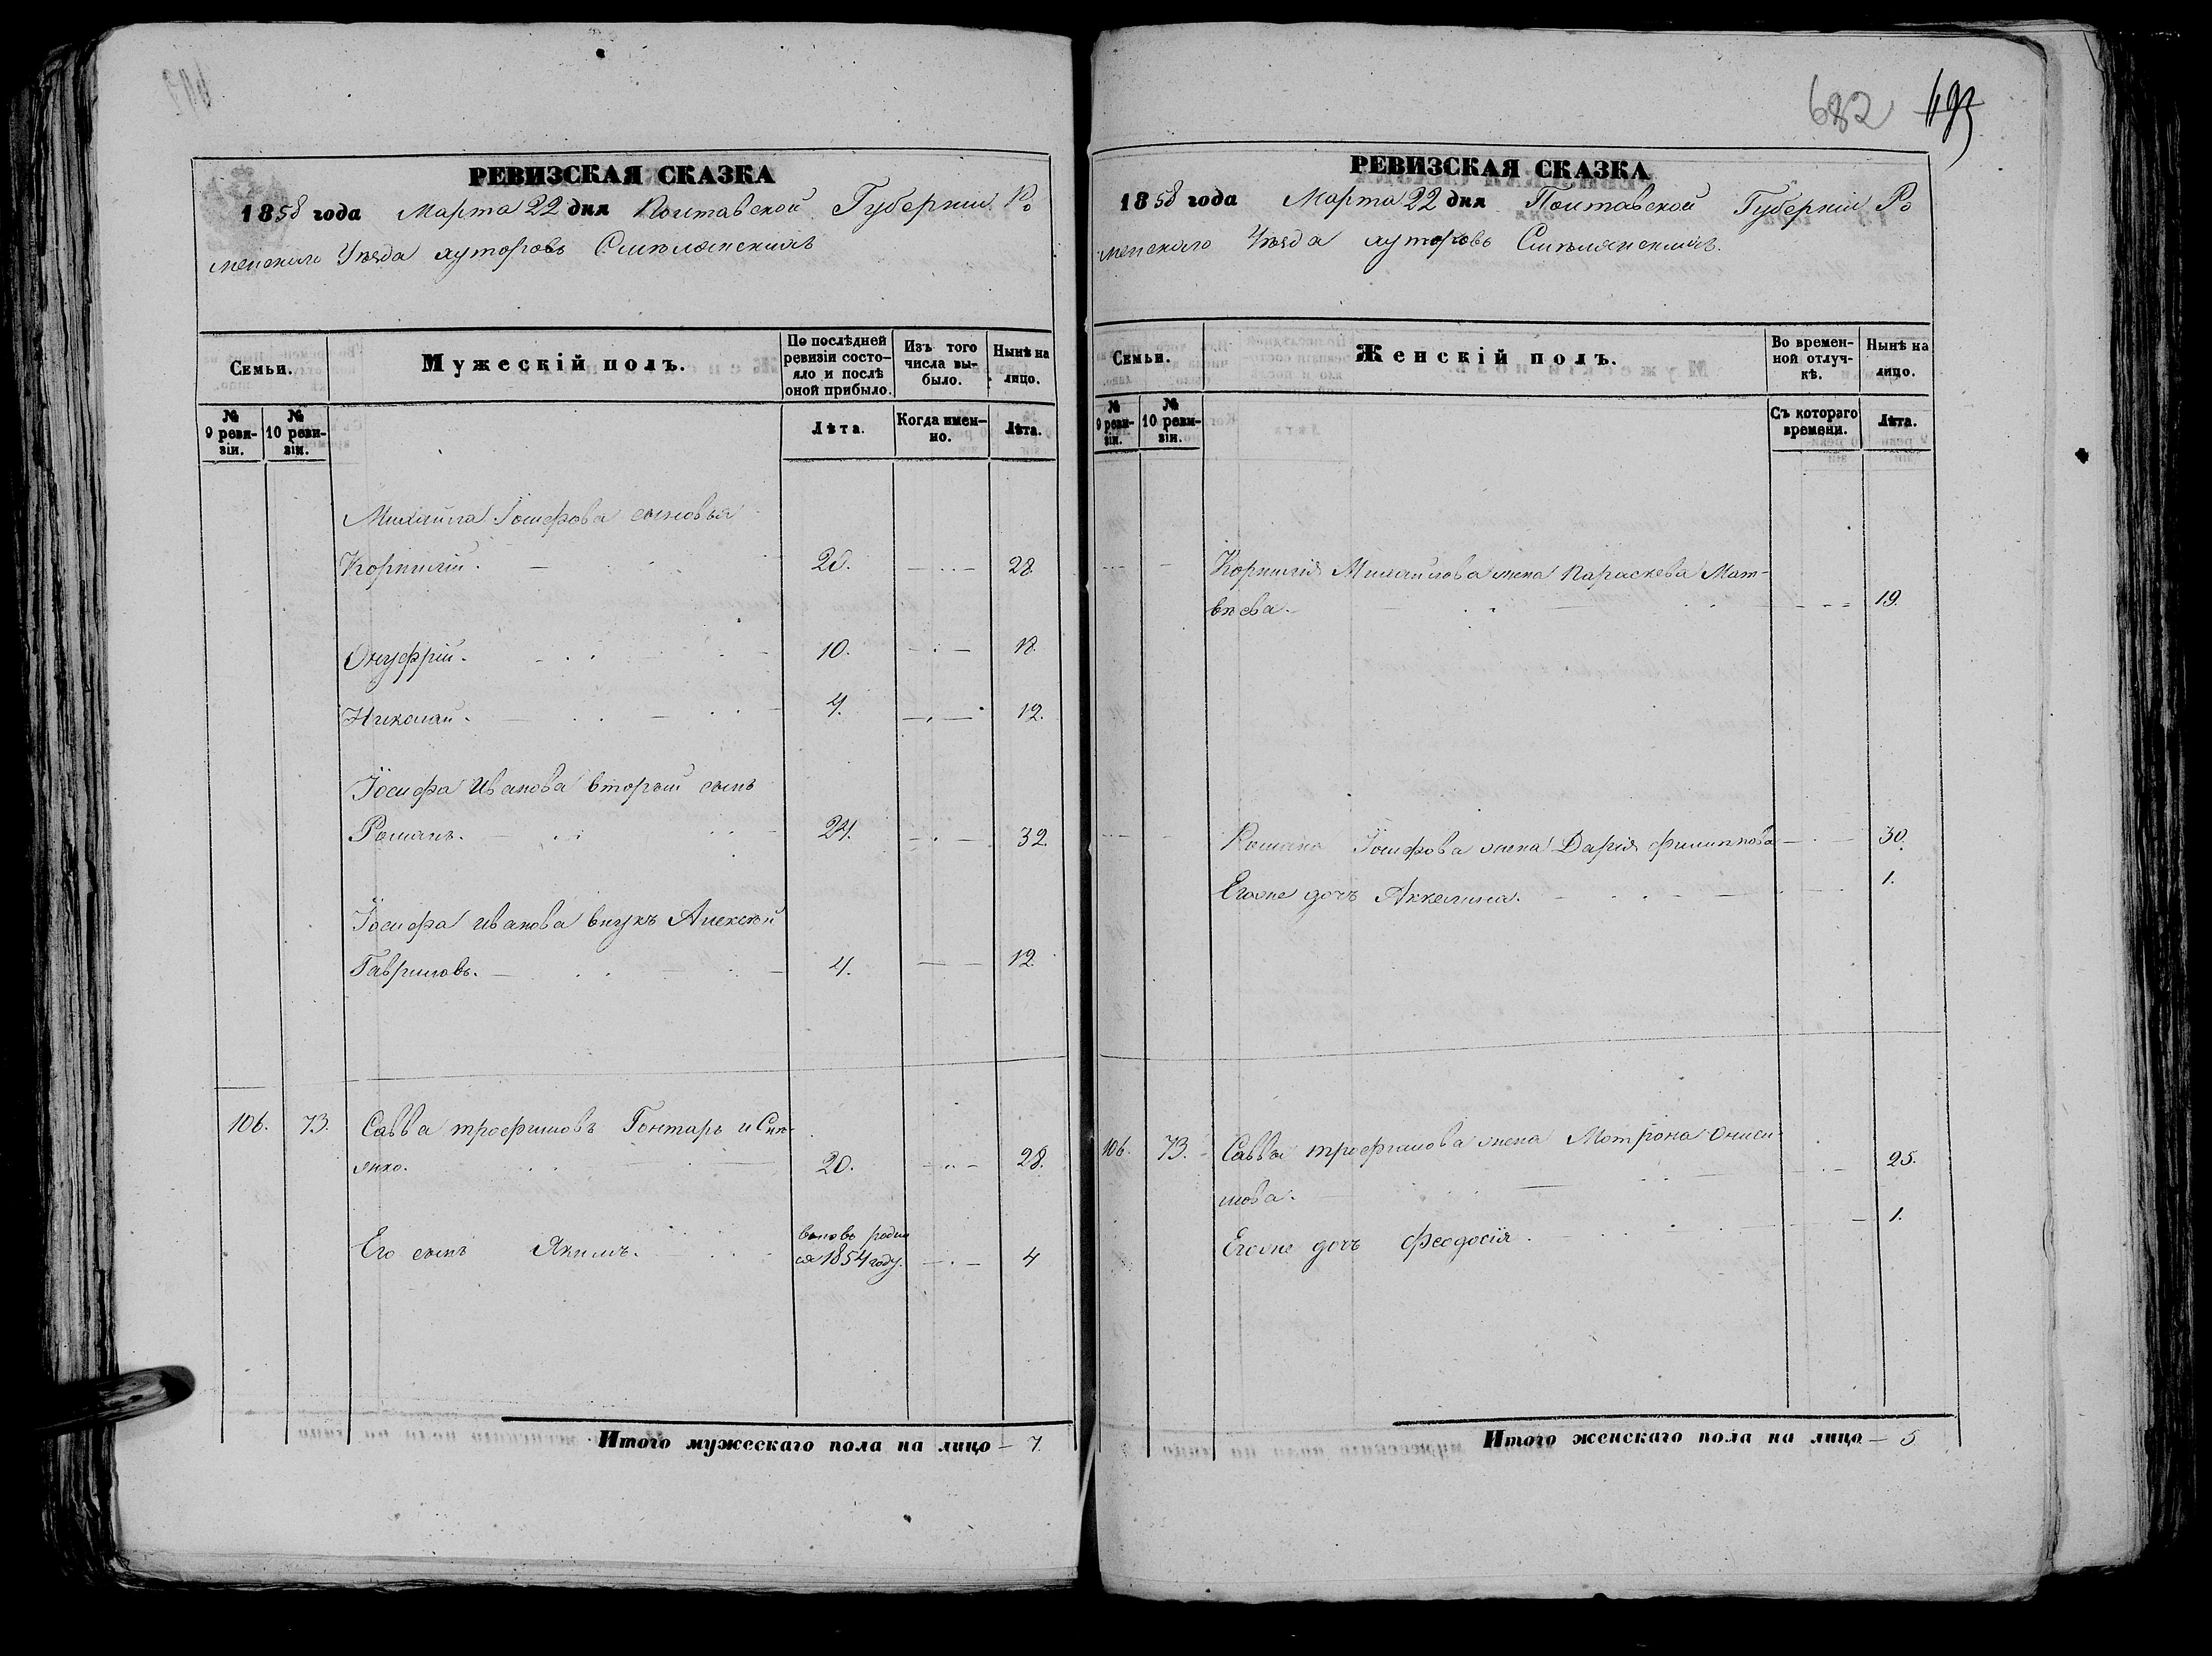 РЕВИЗСКАЯ СКАЗКА
1858 года Марта 22 дня Полтавской Губерніи Ро
менскаго Уѣзда хуторовъ Смѣлянскихъ
Семьи.
Мужескій полъ.
По послѣдней
ревизіи состо-
яло и послѣ
оной прибыло.
Изъ того
числа вы-
было.
Нынѣ на
лицо.
№
9 реви-
зіи.
№
10 реви-
зіи.
Лѣта.
Когда имен-
но.
Лѣта.
Михайла Іосифова сыновья
Корнилій. 20. 28
Онуфрій. 10. 18.
Николай. 4. 12.
Іосифа Иванова вторый сынъ
Романъ. 24. 32.
Іосифа Иванова внукъ Алексѣй
Гавриловъ. 4. 12.
106. 73. Савва Трофимовъ Гонтарь и
20. 28.
Его сынъ Якимъ.
вновь родил
ся 1854 году. 4
Итого мужескаго пола на лицо — 7.
682
РЕВИЗСКАЯ СКАЗКА
1858 года Марта 22 дня Полтавской Губерніи Ро
менскаго Уѣзда хуторовъ Смѣлянскихъ.
Семьи.
Женскій полъ.
Во времен-
ной отлуч-
кѣ.
Нынѣ на
лицо.
№
9 реви-
зіи.
№
10 реви-
зіи.
Съ котораго
времени.
Лѣта.
Корнилія Михайлова жена Параскева Мат-
вѣева. 19.
Романа Іосифова жена Дарія Филиппова 30.
Егоже дочь Аккелина. 1.
106. 73. Саввы Трофимова жена МотронаОниси
мова. 25.
Егоже дочь Феодосія. 1.
Итого женскаго пола на лицо — 5